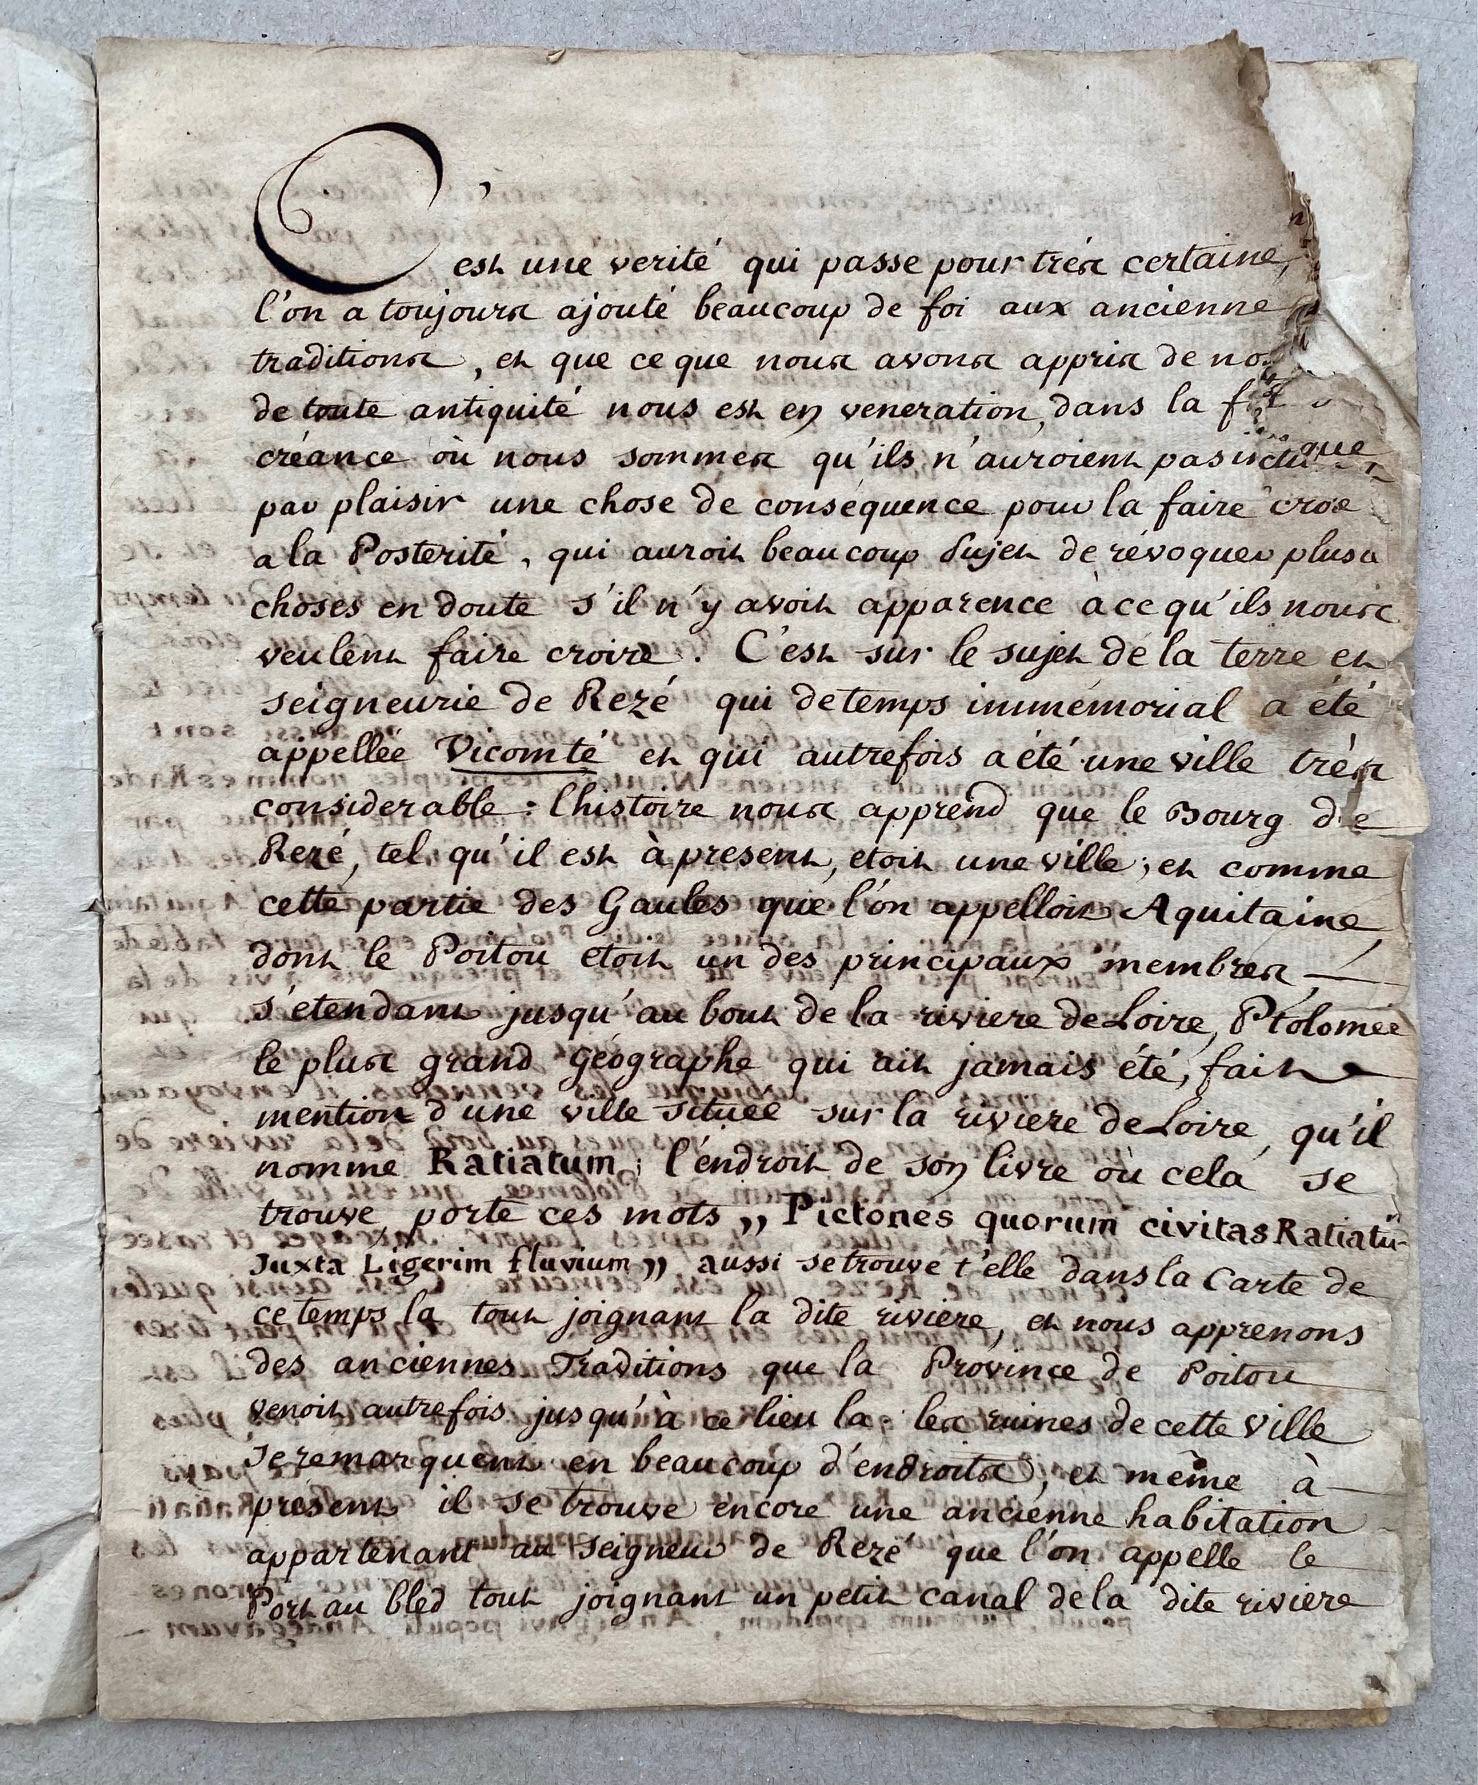 C'est une verité qui passe pour trés certaine,
l'on a toujours ajouté beaucoup de foi aux ancienne
traditions, et que ce que nous avons appris de no
de toute antiquité nous est en veneration, dans la
créance où nous sommes qu'ils n'auroient pas
par plaisir une chose de conséquence pour la faire
a la Posterité, qui auroit beaucoup sujet de révoquer
choses en doute s'il n'y avoit apparence à ce qu'ils nous
veulent faire croire. C'est sur le sujet de la terre et
seigneurie de Rezé qui de temps immémorial a été
appellée Vicomté et qui autrefois a été une ville très
considerable : l'histoire nous apprend que le Bourg de
Rezé, tel qu'il est à present, etoit une ville ; et comme
cette partie des Gaules que l'on appelloit Aquitaine,
dont le Poitou etoit un des principaux membres,
s'etendant jusqu'au bout de la riviere de Loire, Ptolomée
le plus grand géographe qui ait jamais été, fait
mention d'une ville située sur la riviere de Loire, qu'il
nomme Ratiatum ; l'endroit de son livre où cela se
trouve porte ces mots „ Pictones quorum civitas Ratiatū
Juxta Ligerim fluvium „ aussi se trouve t'elle dans la Carte de
ce temps la tout joignant la dite riviere, et nous apprenons
des anciennes Traditions que la Province de Poitou
venoit autrefois jusqu'à ce lieu la les ruines de cette ville
se remarquent en beaucoup d'endroits, et même à
présent il se trouve encore une ancienne habitation
appartenant au seigneur de Rezé que l'on appelle le
Port au bled tout joignant un petit canal de la dite riviere